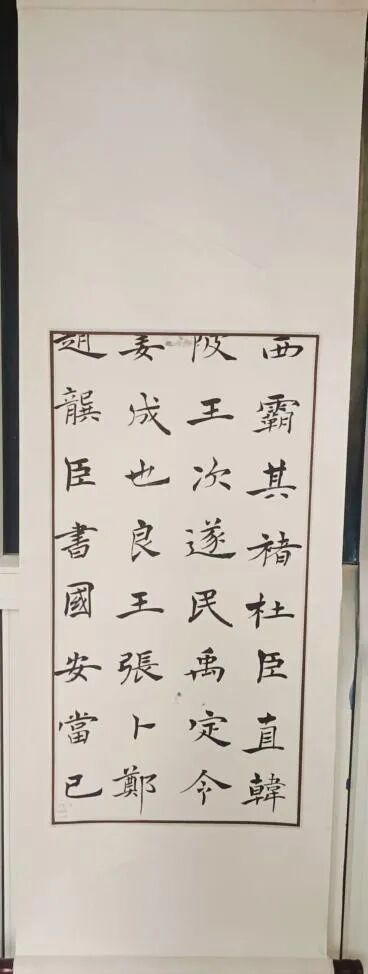 西霸其褚杜臣直韓
陂王次遂民禹定令
妻成也良王張卜鄭
趙龔臣書國安當已